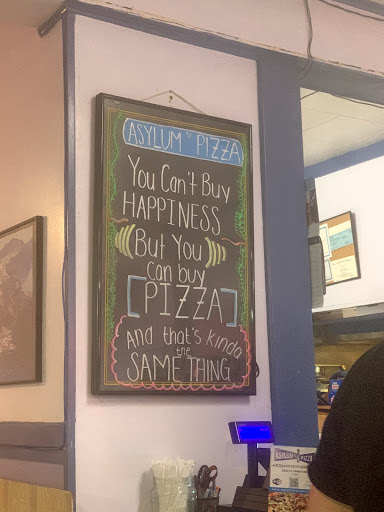 ASYLUM'S PIZZA
You Can't Buy
HAPPINESS
But You
can buy
[PIZZA]
And that's kinda
the
SAME THING
ASYLUM PIZZA